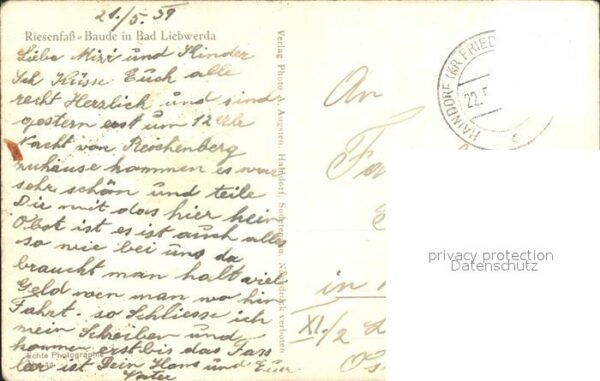 21./5. 39
Riesenfaß-Baude in Bad Liebwerda
Liebe Mizi und Kinder
Ich Küsse Euch alle
recht Herzlich und sind
gestern erst um 12 Uhr
Nacht von Reichenberg
zuhause kommen es war
sehr schön und teile
Dir mit das hier kein
Obst ist es ist auch alles
so wie bei uns da
braucht man halt viel
Geld wen man wo hin
Fährt. so Schliesse ich
mein Schreiben und
kommen erst bis das Fass
leer ist Dein Hans und Euer
Vater
Echte Photographie
Verlag Photo A. Augsten, Haindorf Nachdruck verboten
HAINDORF (KR. FRIED
22.5
An
in
XI/2
privacy protection
Datenschutz